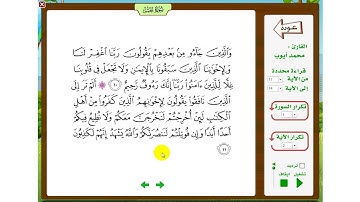 سورة الحشر
وَالَّذِينَ جَاءُو مِنْ بَعْدِهِمْ يَقُولُونَ رَبَّنَا اغْفِرْ لَنَا
وَلِإِخْوَانِنَا الَّذِينَ سَبَقُونَا بِالْإِيمَانِ وَلَا تَجْعَلْ فِي قُلُوبِنَا
غِلًّا لِلَّذِينَ آمَنُوا رَبَّنَا إِنَّكَ رَءُوفٌ رَحِيمٌ ١٠ أَلَمْ تَرَ إِلَى
الَّذِينَ نَافَقُوا يَقُولُونَ لِإِخْوَانِهِمُ الَّذِينَ كَفَرُوا مِنْ أَهْلِ
الْكِتَابِ لَئِنْ أُخْرِجْتُمْ لَنَخْرُجَنَّ مَعَكُمْ وَلَا نُطِيعُ فِيكُمْ
أَحَدًا أَبَدًا وَإِنْ قُوتِلْتُمْ لَنَنْصُرَنَّكُمْ وَاللَّهُ يَشْهَدُ إِنَّهُمْ لَكَاذِبُونَ
١١
عودة
القارئ :
محمد أيوب
قراءة محددة
من الآية
إلى الآية
تكرار السورة
تكرار الآية
2
ترديد
تشغيل إيقاف